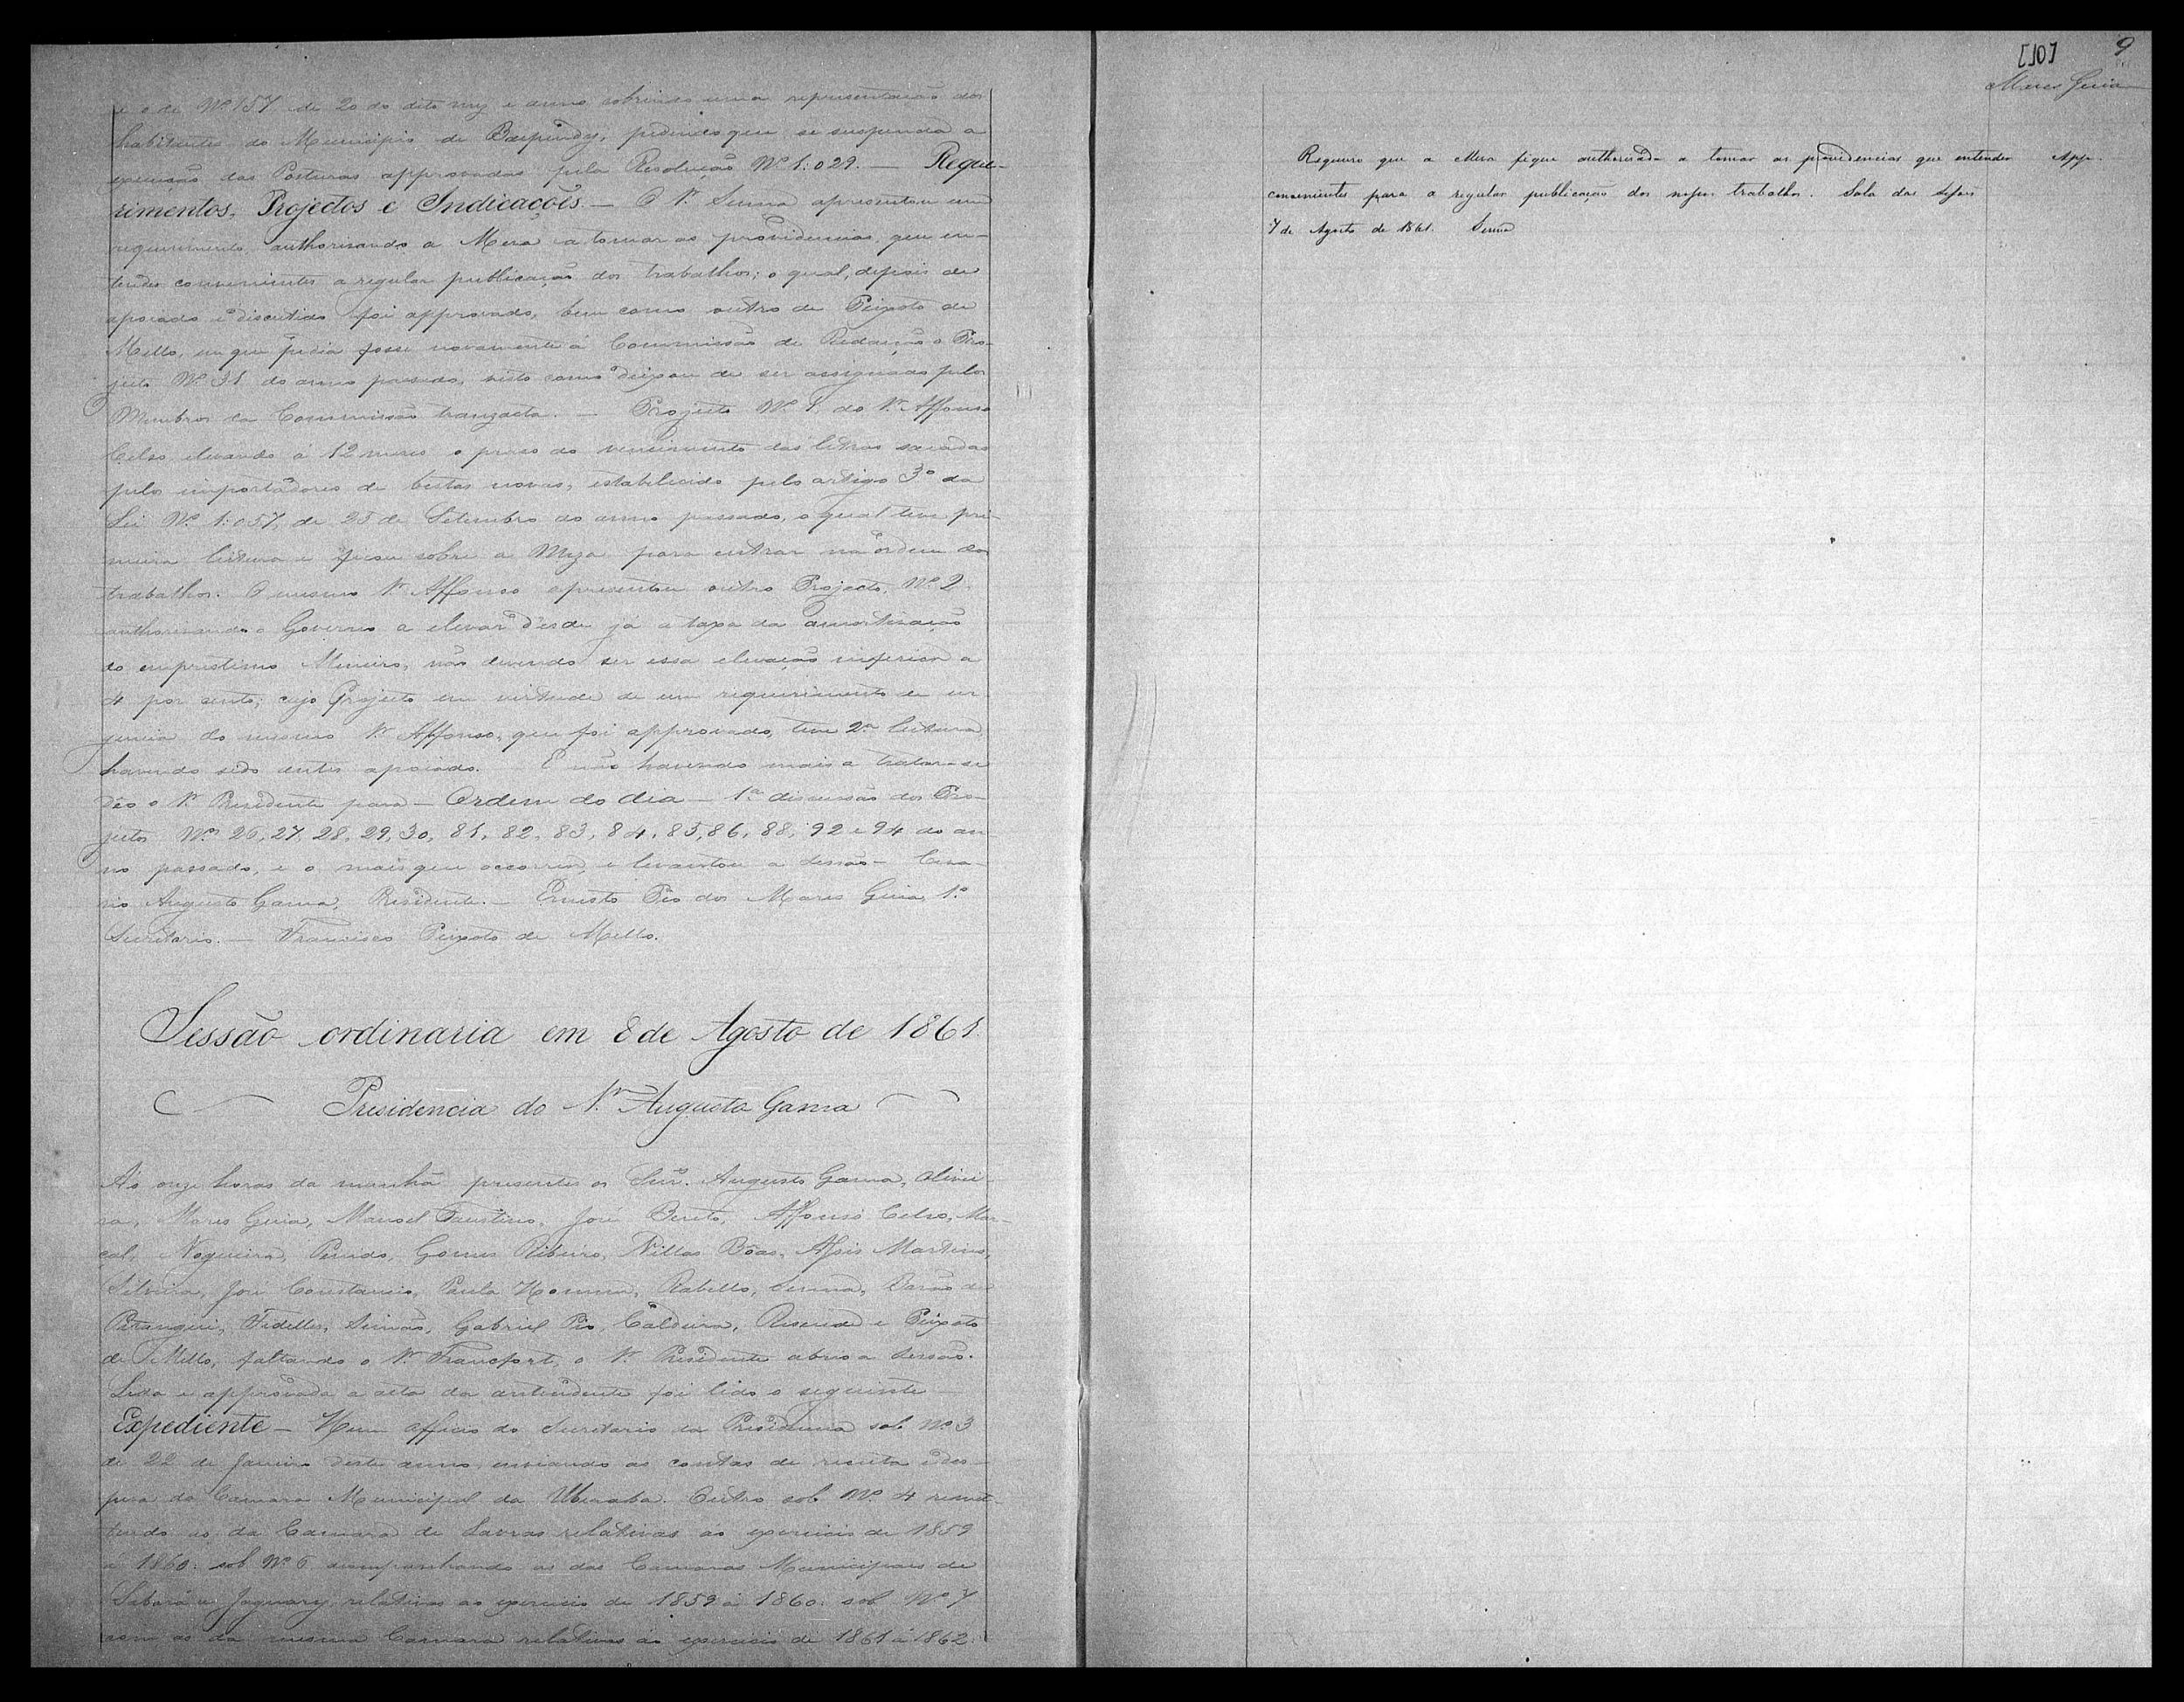 e o de Nº 157 de 20 do dito mez e anno cobrindo uma representação dos
habitantes do Municipio de Baependy, pedindo que se suspenda a
execusão das Posturas approvadas pela Resolução Nº 1:029. — Reque-
rimentos, Projectos e Indicações — O Sr. Senna apresentou um
requerimento authorisando a Mesa a tomar as providencias, que en-
tender convenientes a regular publicação dos trabalhos; o qual, depois de
apoiado e discutido foi approvado, bem como outro de Peixoto de
Mello, em que pedia fosse novamente á Commissão de Redacção o Pro-
jecto Nº 31 do anno passado, visto como deixou de ser assignado pelos
Membros da Commissão tranzacta. — Projecto Nº 1 do Sr. Affonso
Celso, elevando á 12 mezes o praso do vencimento das letras sacadas
pelos importadores de bestas novas, estabelecido pelo artigo 3º da
Lei Nº 1:057, de 25 de Setembro do anno passado, o qual teve pri-
meira leitura e ficou sobre a Meza para entrar na ordem dos
trabalhos. O mesmo Sr. Affonso apresentou outro Projecto, Nº 2
authorisando o Governo a elevar d'esde já a taxa da amortisação
do emprestimo Mineiro, não devendo ser essa elevação inferior a
4 por cento; cujo Projecto em virtude de um requerimento de ur-
gencia do mesmo Sr. Affonso, que foi approvado, teve 2ª leitura
havendo sido antes apoiado. — E não havendo mais a tratar-se
deo o Sr. Presidente para — Ordem do dia — 1ª discussão dos Pro-
jectos Nos 26, 27, 28, 29, 30, 81, 82, 83, 84, 85, 86, 88, 92 e 94 do an-
no passado, e o mais que occorrer, e levantou a sessão —
Augusto Gama, Presidente. — Ernesto Pio dos Mares Guia, 1º
Secretario. — Francisco Peixoto de Mello.
Sessão ordinaria em 8 de Agosto de 1861.
Presidencia do Sr. Augusto Gama
Ás onze horas da manhã presentes os Snrs. Augusto Gama, Olivei-
ra, Mares Guia, Manoel Faustino, José Bento, Affonso Celso, Mar-
çal, Nogueira, Penido, Gomes Ribeiro, Villas Bôas, Assis Martins,
Silveira, José Constancio, Paula Rabello, Senna, Barão de
Pitangui, Fidelles, Simão, Gabriel Pio, Caldeira, Resende e Peixoto
de Mello, faltando o Sr. Francfort, o Sr. Presidente abrio a sessão.
Lida e approvada a acta da antecedente foi lido o seguinte
Expediente — Hum officio do Secretario da Presidencia sob Nº 3
de 22 de Janeiro deste anno, enviando as contas de receita e des-
peza da Camara Municipal da Uberaba. Outro sob Nº 4 remet-
tendo as da Camara de Lavras relativas ao exercicio de 1859
a 1860: sob Nº 6 acompanhando as das Camaras Municipaes de
Sabará e Jaguary, relativas ao exercicio de 1859 á 1860: sob Nº 7
com as da mesma Camara relativas ao exercicio de 1861 á 1862.
[10] 9
Mares Guia
Requeiro que a Mesa fique authorisada a tomar as providencias que entender App.
convenientes para a regular publicação dos nossos trabalhos. Sala das Sessões
7 de Agosto de 1861. Senna